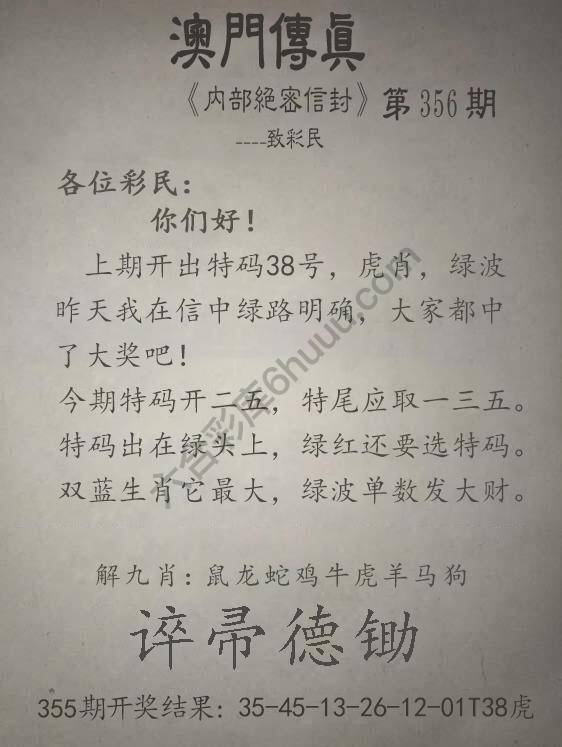 澳門傳眞
《内部絕密信封》第356期
----致彩民
各位彩民：
你们好！
上期开出特码38号，虎肖，绿波
昨天我在信中绿路明确，大家都中
了大奖吧！
今期特码开二五，特尾应取一三五。
特码出在绿头上，绿红还要选特码。
双蓝生肖它最大，绿波单数发大财。
六合彩库6huuu.com
解九肖：鼠龙蛇鸡牛虎羊马狗
谇帚德锄
355期开奖结果：35-45-13-26-12-01T38虎